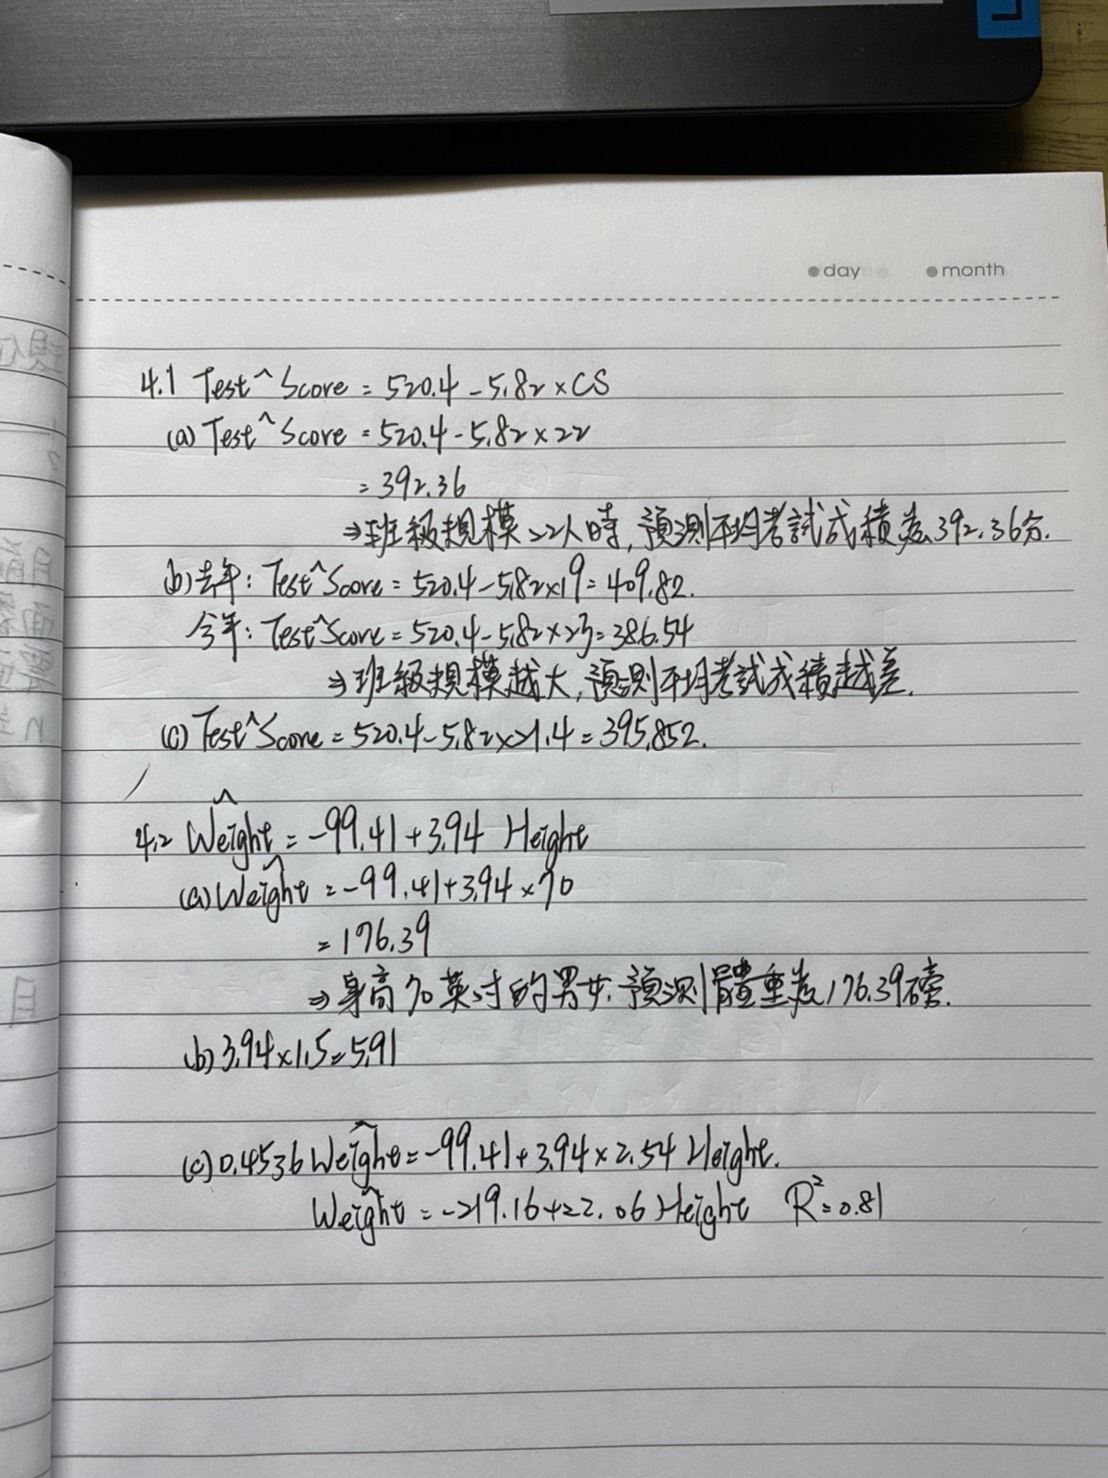 day month
4.1 Test^Score = 520.4 - 5.82 × CS
(a) Test^Score = 520.4 - 5.82 × 22
= 392.36
⇒ 班級規模22人時, 預測平均考試成績為392.36分.
(b) 去年: Test^Score = 520.4 - 5.82×19 = 409.82.
今年: Test^Score = 520.4 - 5.82×23 = 386.54
⇒ 班級規模越大, 預測平均考試成績越差.
(c) Test^Score = 520.4 - 5.82×21.4 = 395.852.
4.2 Weight^ = -99.41 + 3.94 Height
(a) Weight^ = -99.41 + 3.94 × 70
= 176.39
⇒ 身高70英寸的男女, 預測體重為176.39磅.
(b) 3.94×1.5 = 5.91
(c) 0.4536 Weight^ = -99.41 + 3.94 × 2.54 Height.
Weight^ = -219.16 + 22.06 Height R² = 0.81